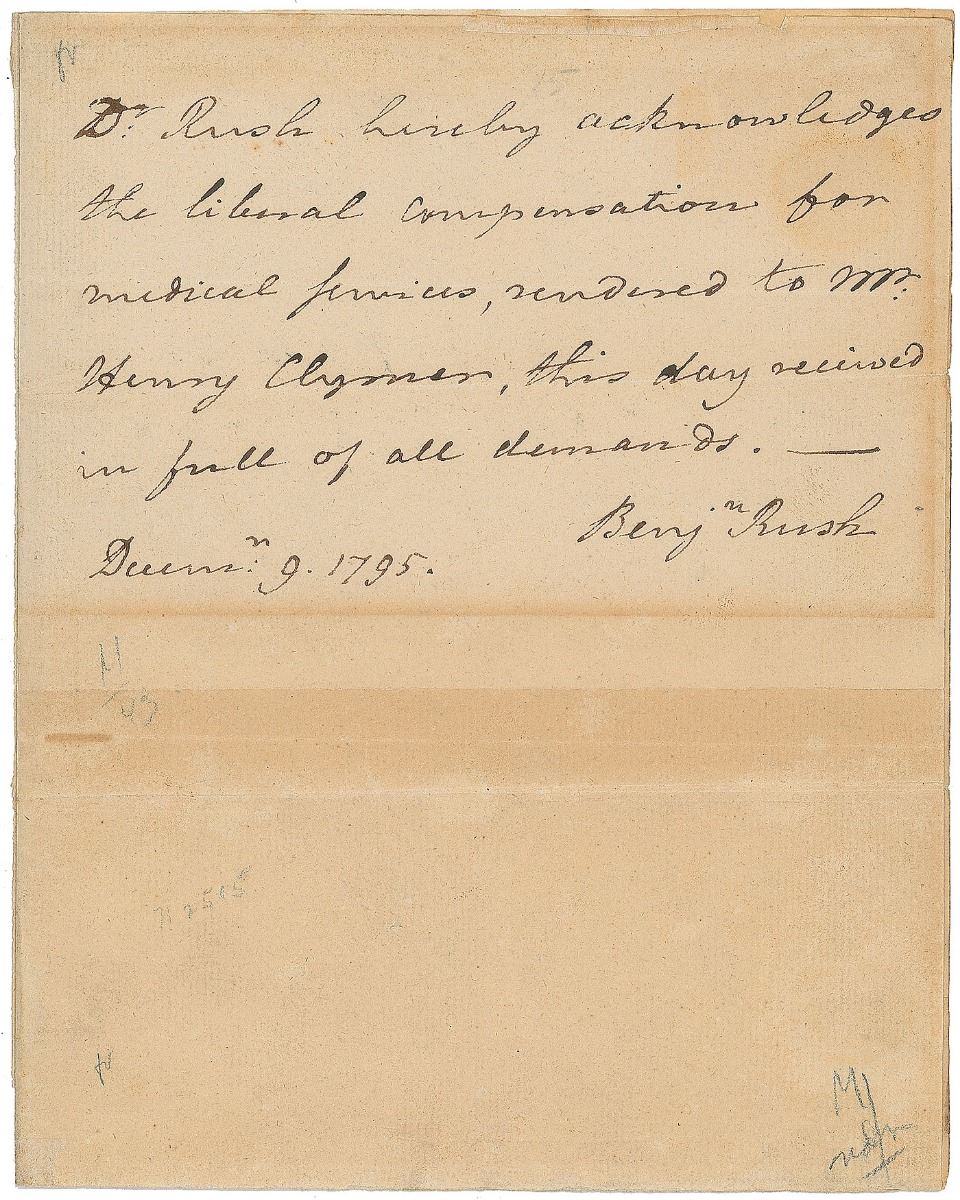 Dr. Rush hereby acknowledges
the liberal compensation for
medical services, rendered to Mr.
Henry Clymer, this day received
in full of all demands. —
Benjn Rush
Decemr. 9. 1795.